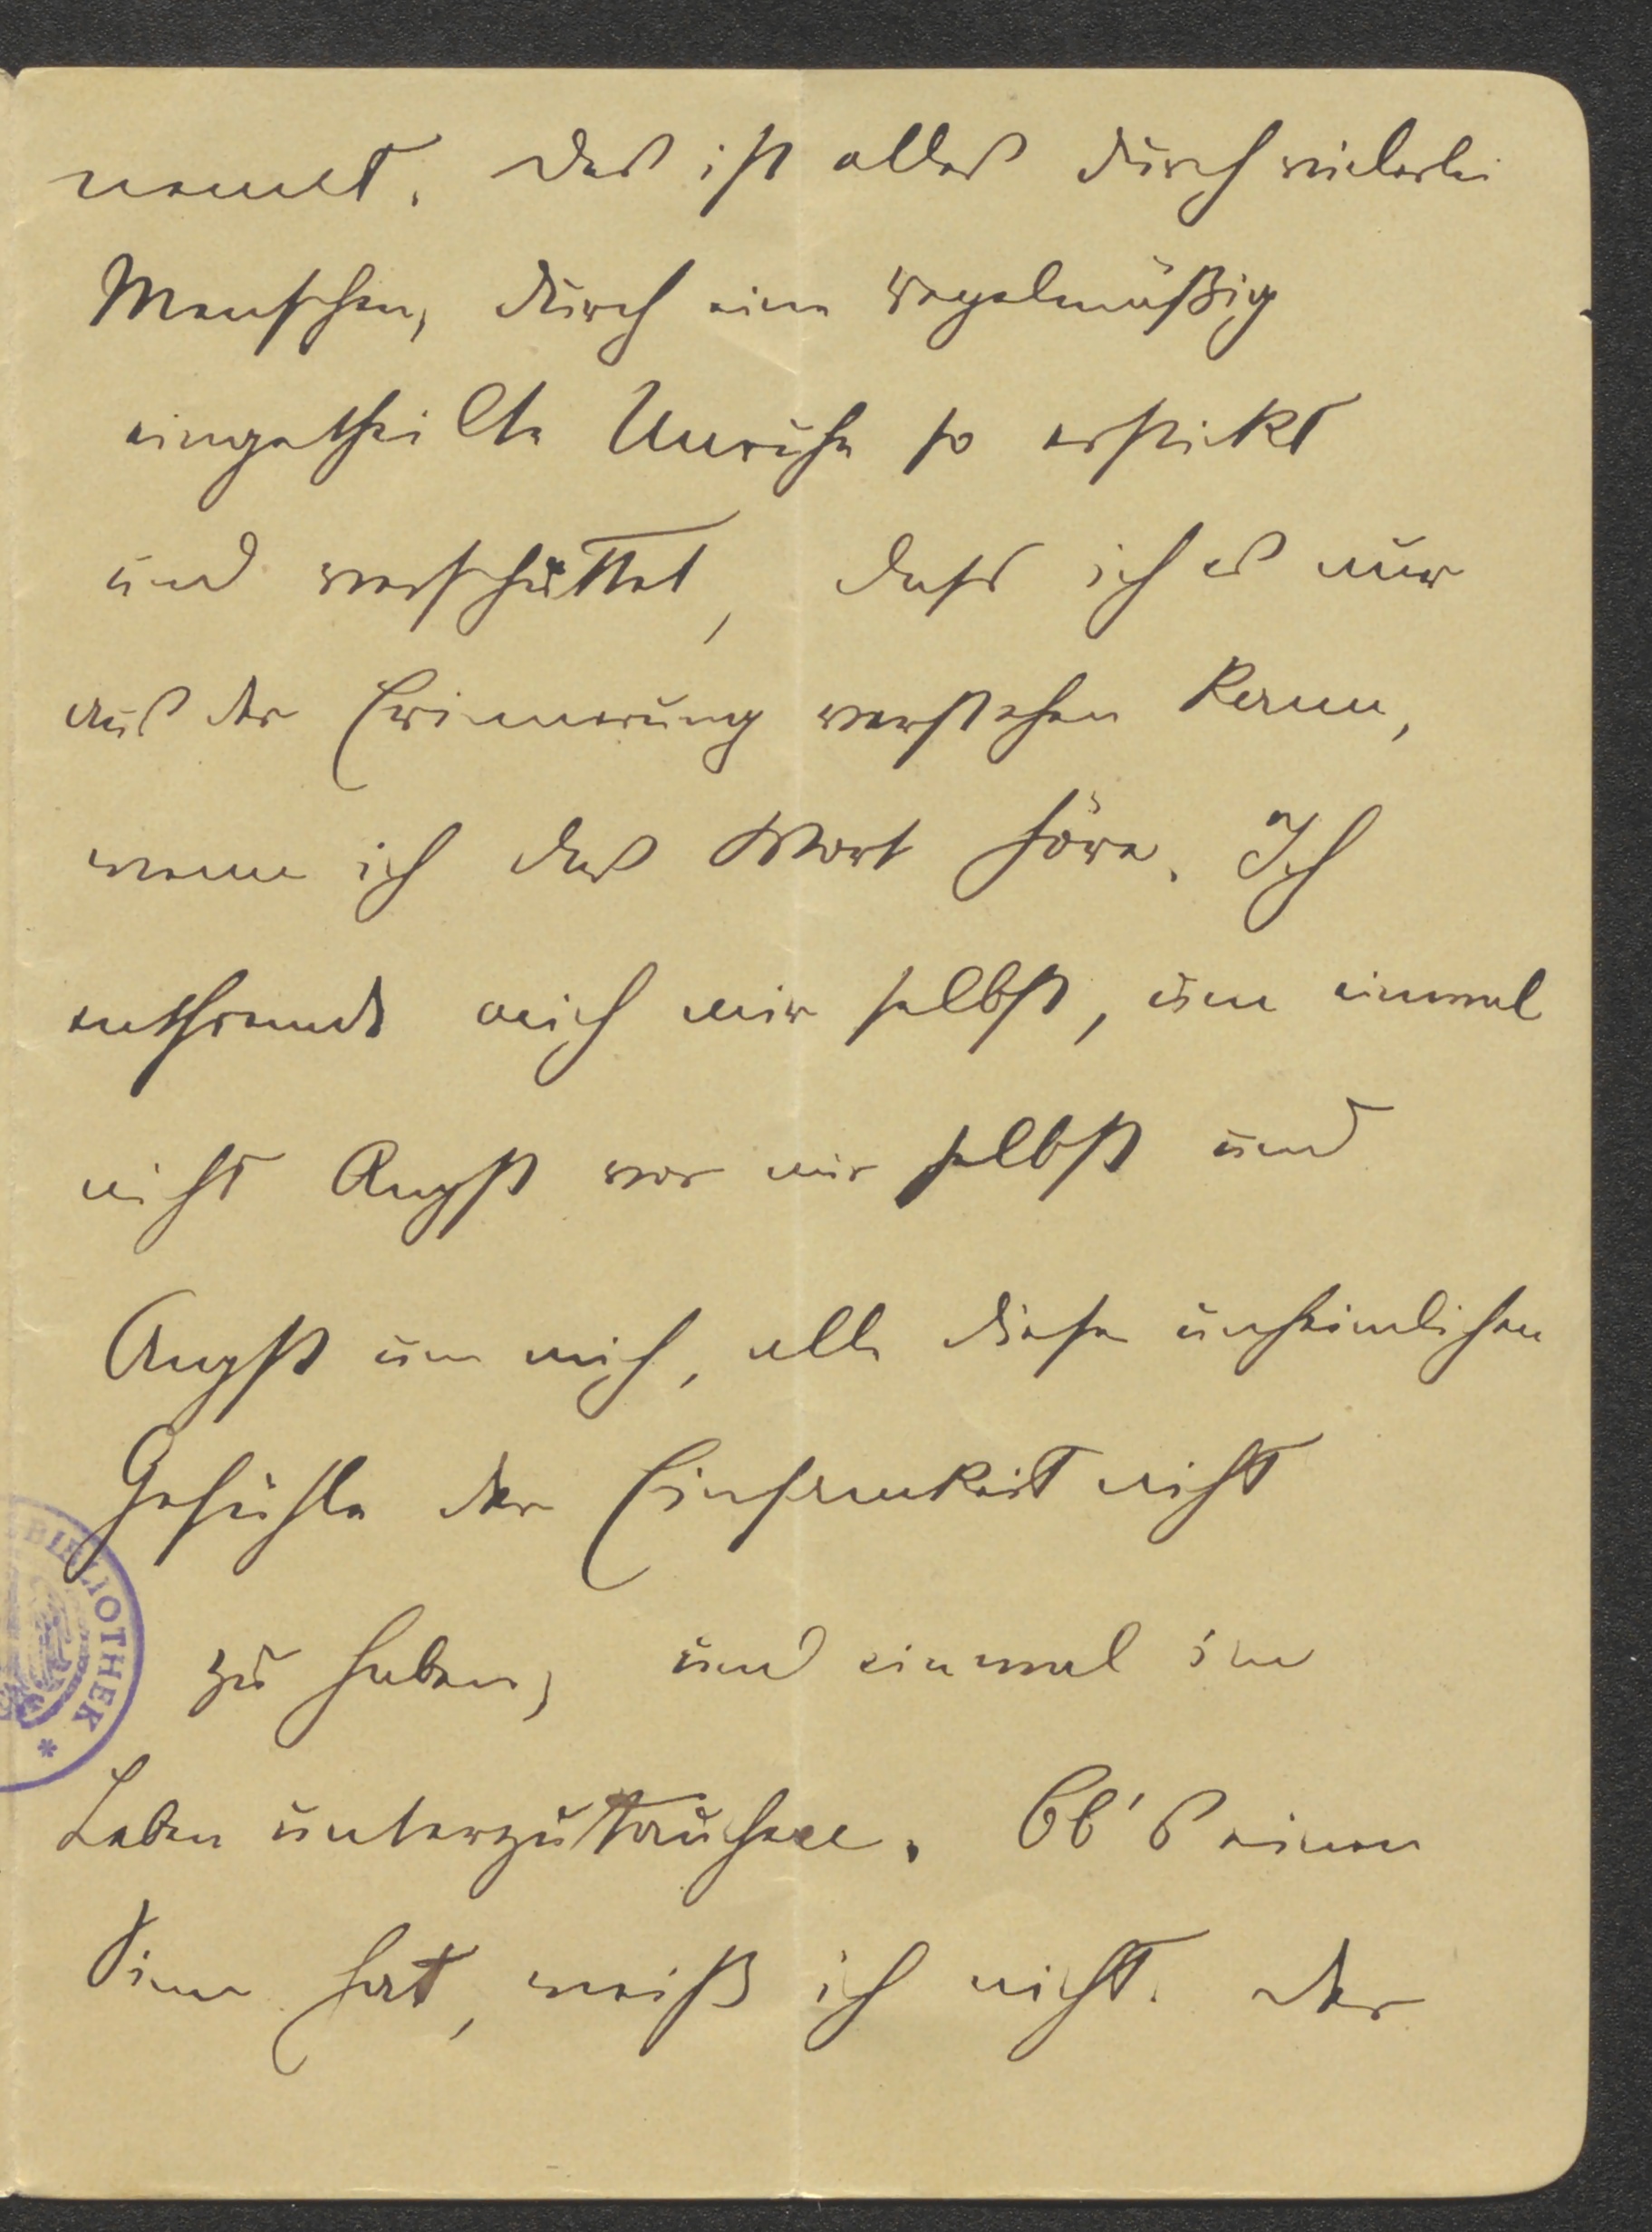 nennt. Das ist alles durch vielerlei
Menschen, durch eine regelmäßig
eingetheilte Unruhe so erstickt
und verschüttet, dass ich es nur
aus der Erinnerung verstehen kann,
wenn ich das Wort höre. Ich
entfremde mich mir selbst, um einmal
nicht Angst vor mir selbst und
Angst um mich, alle diese unheimlichen
Gefühle der Einsamkeit nicht
zu haben, und einmal im
Leben unterzutauchen. Ob's einen
Sinn hat, weiß ich nicht. Der
BIBLIOTHEK *